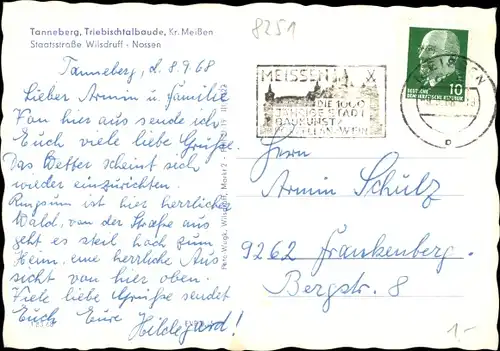 Tanneberg, Triebischtalbaude, Kr. Meißen
Staatsstraße Wilsdruff - Nossen
8251
Tanneberg, d. 8.9.68
Lieber Armin u. Familie
Von hier aus sende ich
Euch viele liebe Grüße.
Das Wetter scheint sich
wieder einzurichten.
Ringsum ist hier herrlicher
Wald, von der Straße aus
geht es steil hoch zum
Heim, eine herrliche Aus
sicht von hier oben.
Viele liebe Grüße sendet
Euch Eure Hildegard!
MEISSEN
DIE 1000
JÄHRIGE STADT
BAUKUNST
PORZELLAN · WEIN
MEISSEN
10
DEUTSCHE
DEMOKRATISCHE REPUBLIK
Herrn
Armin Schulz
9262 Frankenberg.
Bergstr. 8
1,-